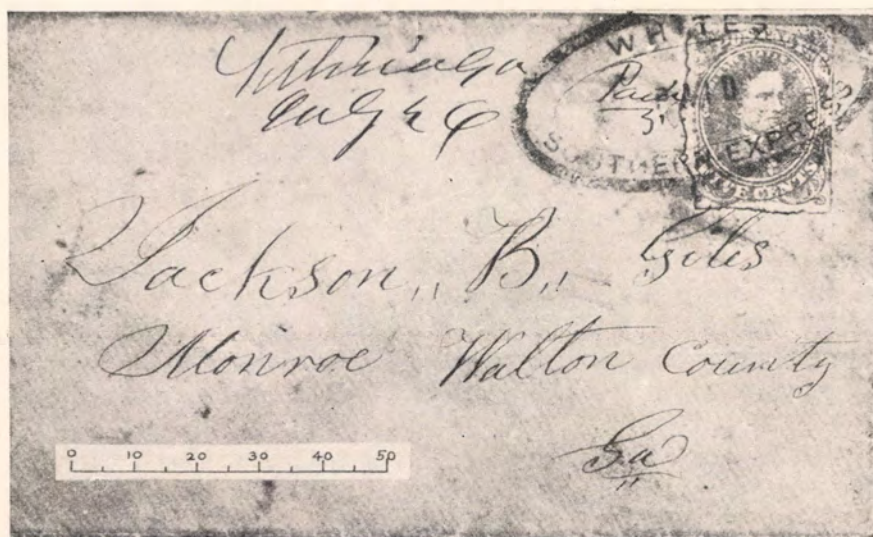 Lithonia Ga
July 26
WHITES
Paid
PAID
3
SOUTHERN EXPRESS
Jackson,, B,, Giles
Monroe Walton County
Ga
0 10 20 30 40 50